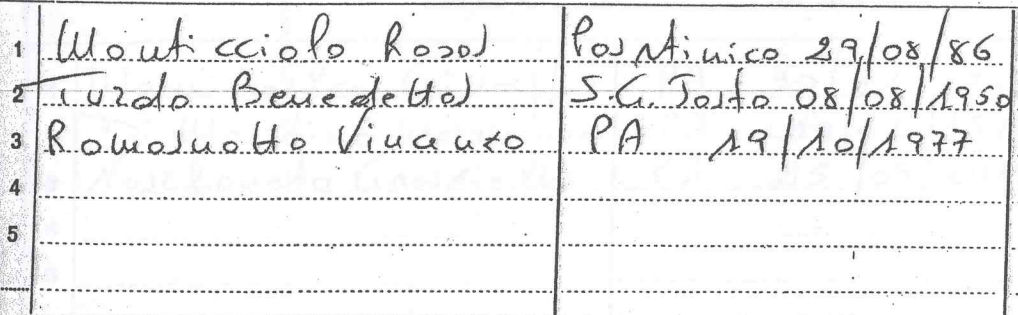 1 Monticciolo Rosa Partinico 29/08/86
2 Turdo Benedetta S.G. Jato 08/08/1950
3 Romanotto Vincenzo PA 19/10/1977
4
5